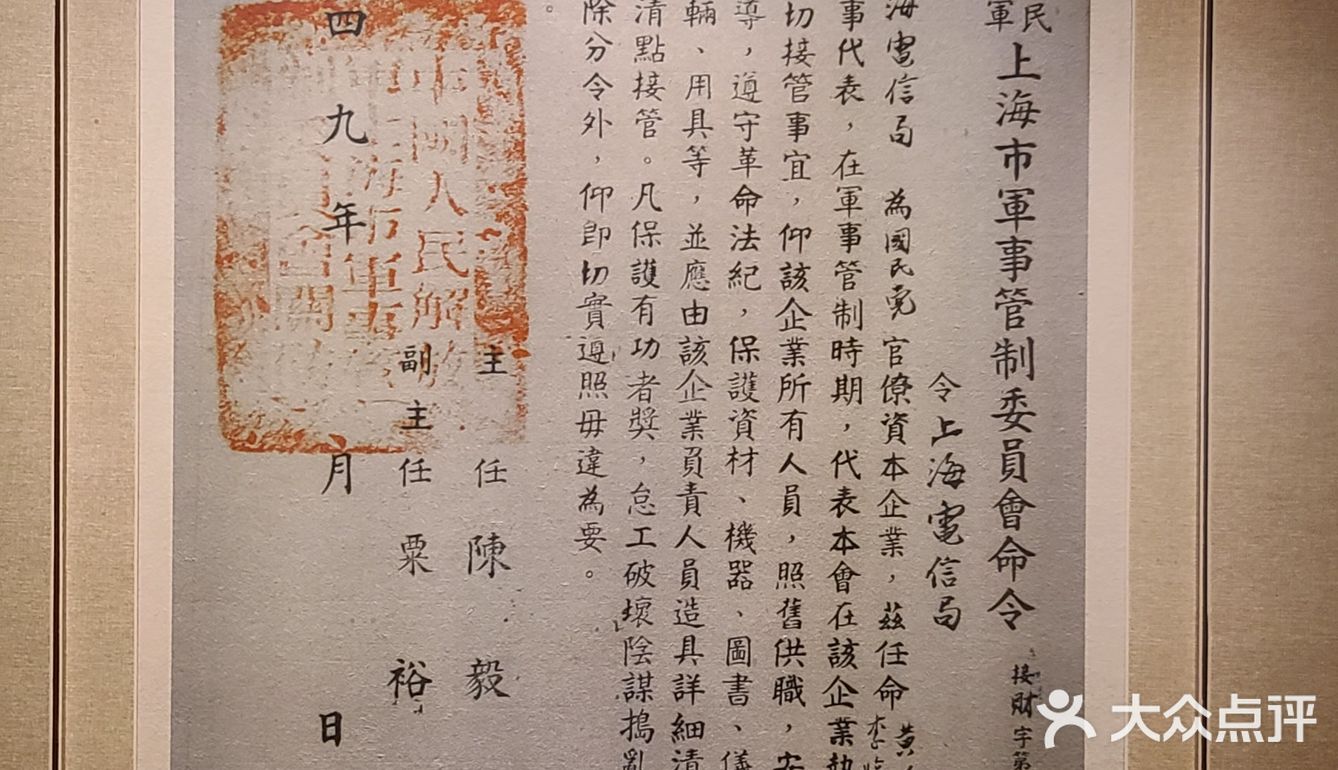 民
軍
上海市軍事管制委員會命令
接財字第
令上海電信局
海電信局 為國民党官僚資本企業，茲任命黄
李
事代表，在軍事管制時期，代表本會在該企業執
切接管事宜，仰該企業所有人員，照舊供職，安
導，遵守革命法紀，保護資材、機器、圖書、儀
輛、用具等，並應由該企業負責人員造具詳細清
清點接管。凡保護有功者獎，怠工破壞陰謀搗亂
除分令外，仰即切實遵照毋違為要。
。
主任陳毅
副主任粟裕
四九年月日
中國人民解放
上海市軍事
管
關
大众点评